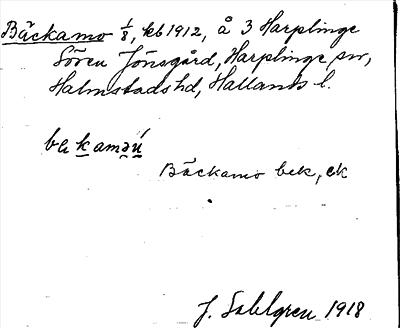 Bäckamo 1/8, leb 1912, å 3 Harplinge
Sören Jönsgård, Harplinge sn,
Halmstads hd, Hallands l.
Bäckamo bek, ck
J. Sahlgren 1918